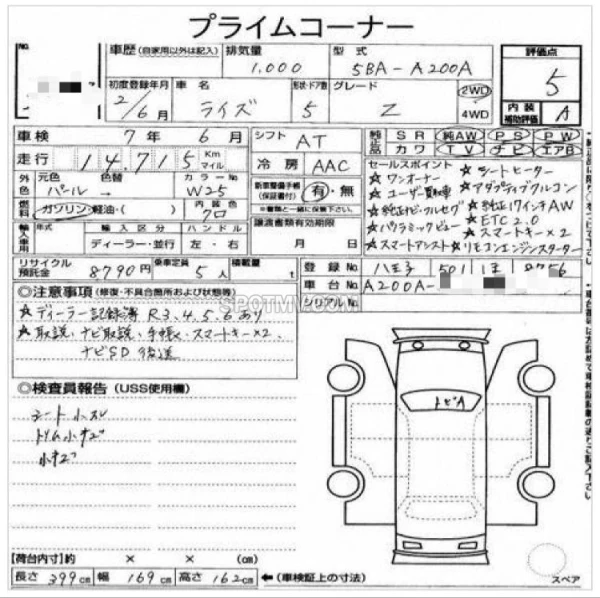 プライムコーナー
No.
車歴 (自家用以外は記入)
排気量 1,000
型式 5BA-A200A
評価点 5
初度登録年月 2/6月
車名 ライズ
形状・ドア数 5
グレード Z
2WD
4WD
内装補助評価 A
車検 7年 6月
シフト AT
走行 14,715 Km マイル
冷房 AAC
純正 SR 純AW PS PW
カワ TV ナビ エアB
外色 元色 パール 色替 →
カラーNo W25
燃料 ガソリン・軽油・( )
内装色 クロ
新車整備手帳(保証書付) 有・無
※書類と一緒に保管下さい。
譲渡書類有効期限
月 日
輸入車用 年式 輸入区分 ハンドル
ディーラー・並行 左・右
セールスポイント
☆ワンオーナー ☆シートヒーター
☆ユーザー買取車 ☆アダプティブクルコン
☆純正ナビ・フルセグ ☆純正17インチAW
☆パノラミックビュー ☆ETC2.0
☆スマートアシスト ☆スマートキー×2
☆リモコンエンジンスターター
リサイクル預託金 8790円
乗車定員 5人
積載量 t
登録No. 八王子 501 ほ 8756
車台No. A200A-
シリアルNo.
◎注意事項 (修復・不具合箇所および状態等)
☆ディーラー記録簿 R3.4.5.6あり
☆取説、ナビ取説、手帳、スマートキー×2、
ナビSD 後送
SPOTMY.COM
◎検査員報告 (USS使用欄)
シート小スレ
トリム小キズ
小キズ
トビA
【荷台内寸】約 × × (cm)
長さ 399cm 幅 169cm 高さ 162cm ←(車検証上の寸法)
スペア